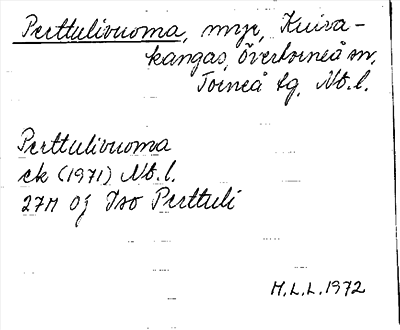 Perttulivuoma, myr, Kuiva-
kangas, Övertorneå sn,
Torneå tg, Nb.l.
Perttulivuoma
ek (1971) Nb.l.
27M 0j Iso Perttuli
M.L.L. 1972